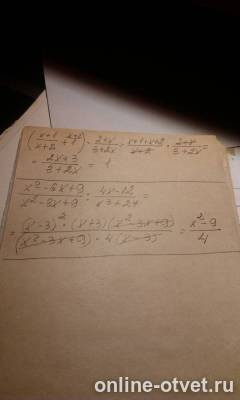 (x+1/x+2 + 1) · 2+x/3+2x = x+1+x+2/x+2 · 2+x/3+2x =
= 2x+3/3+2x = 1
x²-6x+9/x²-3x+9 : 4x-12/x³+27 =
= (x-3)² · (x+3)(x²-3x+9)/(x²-3x+9) · 4(x-3) = x²-9/4
online-otvet.ru